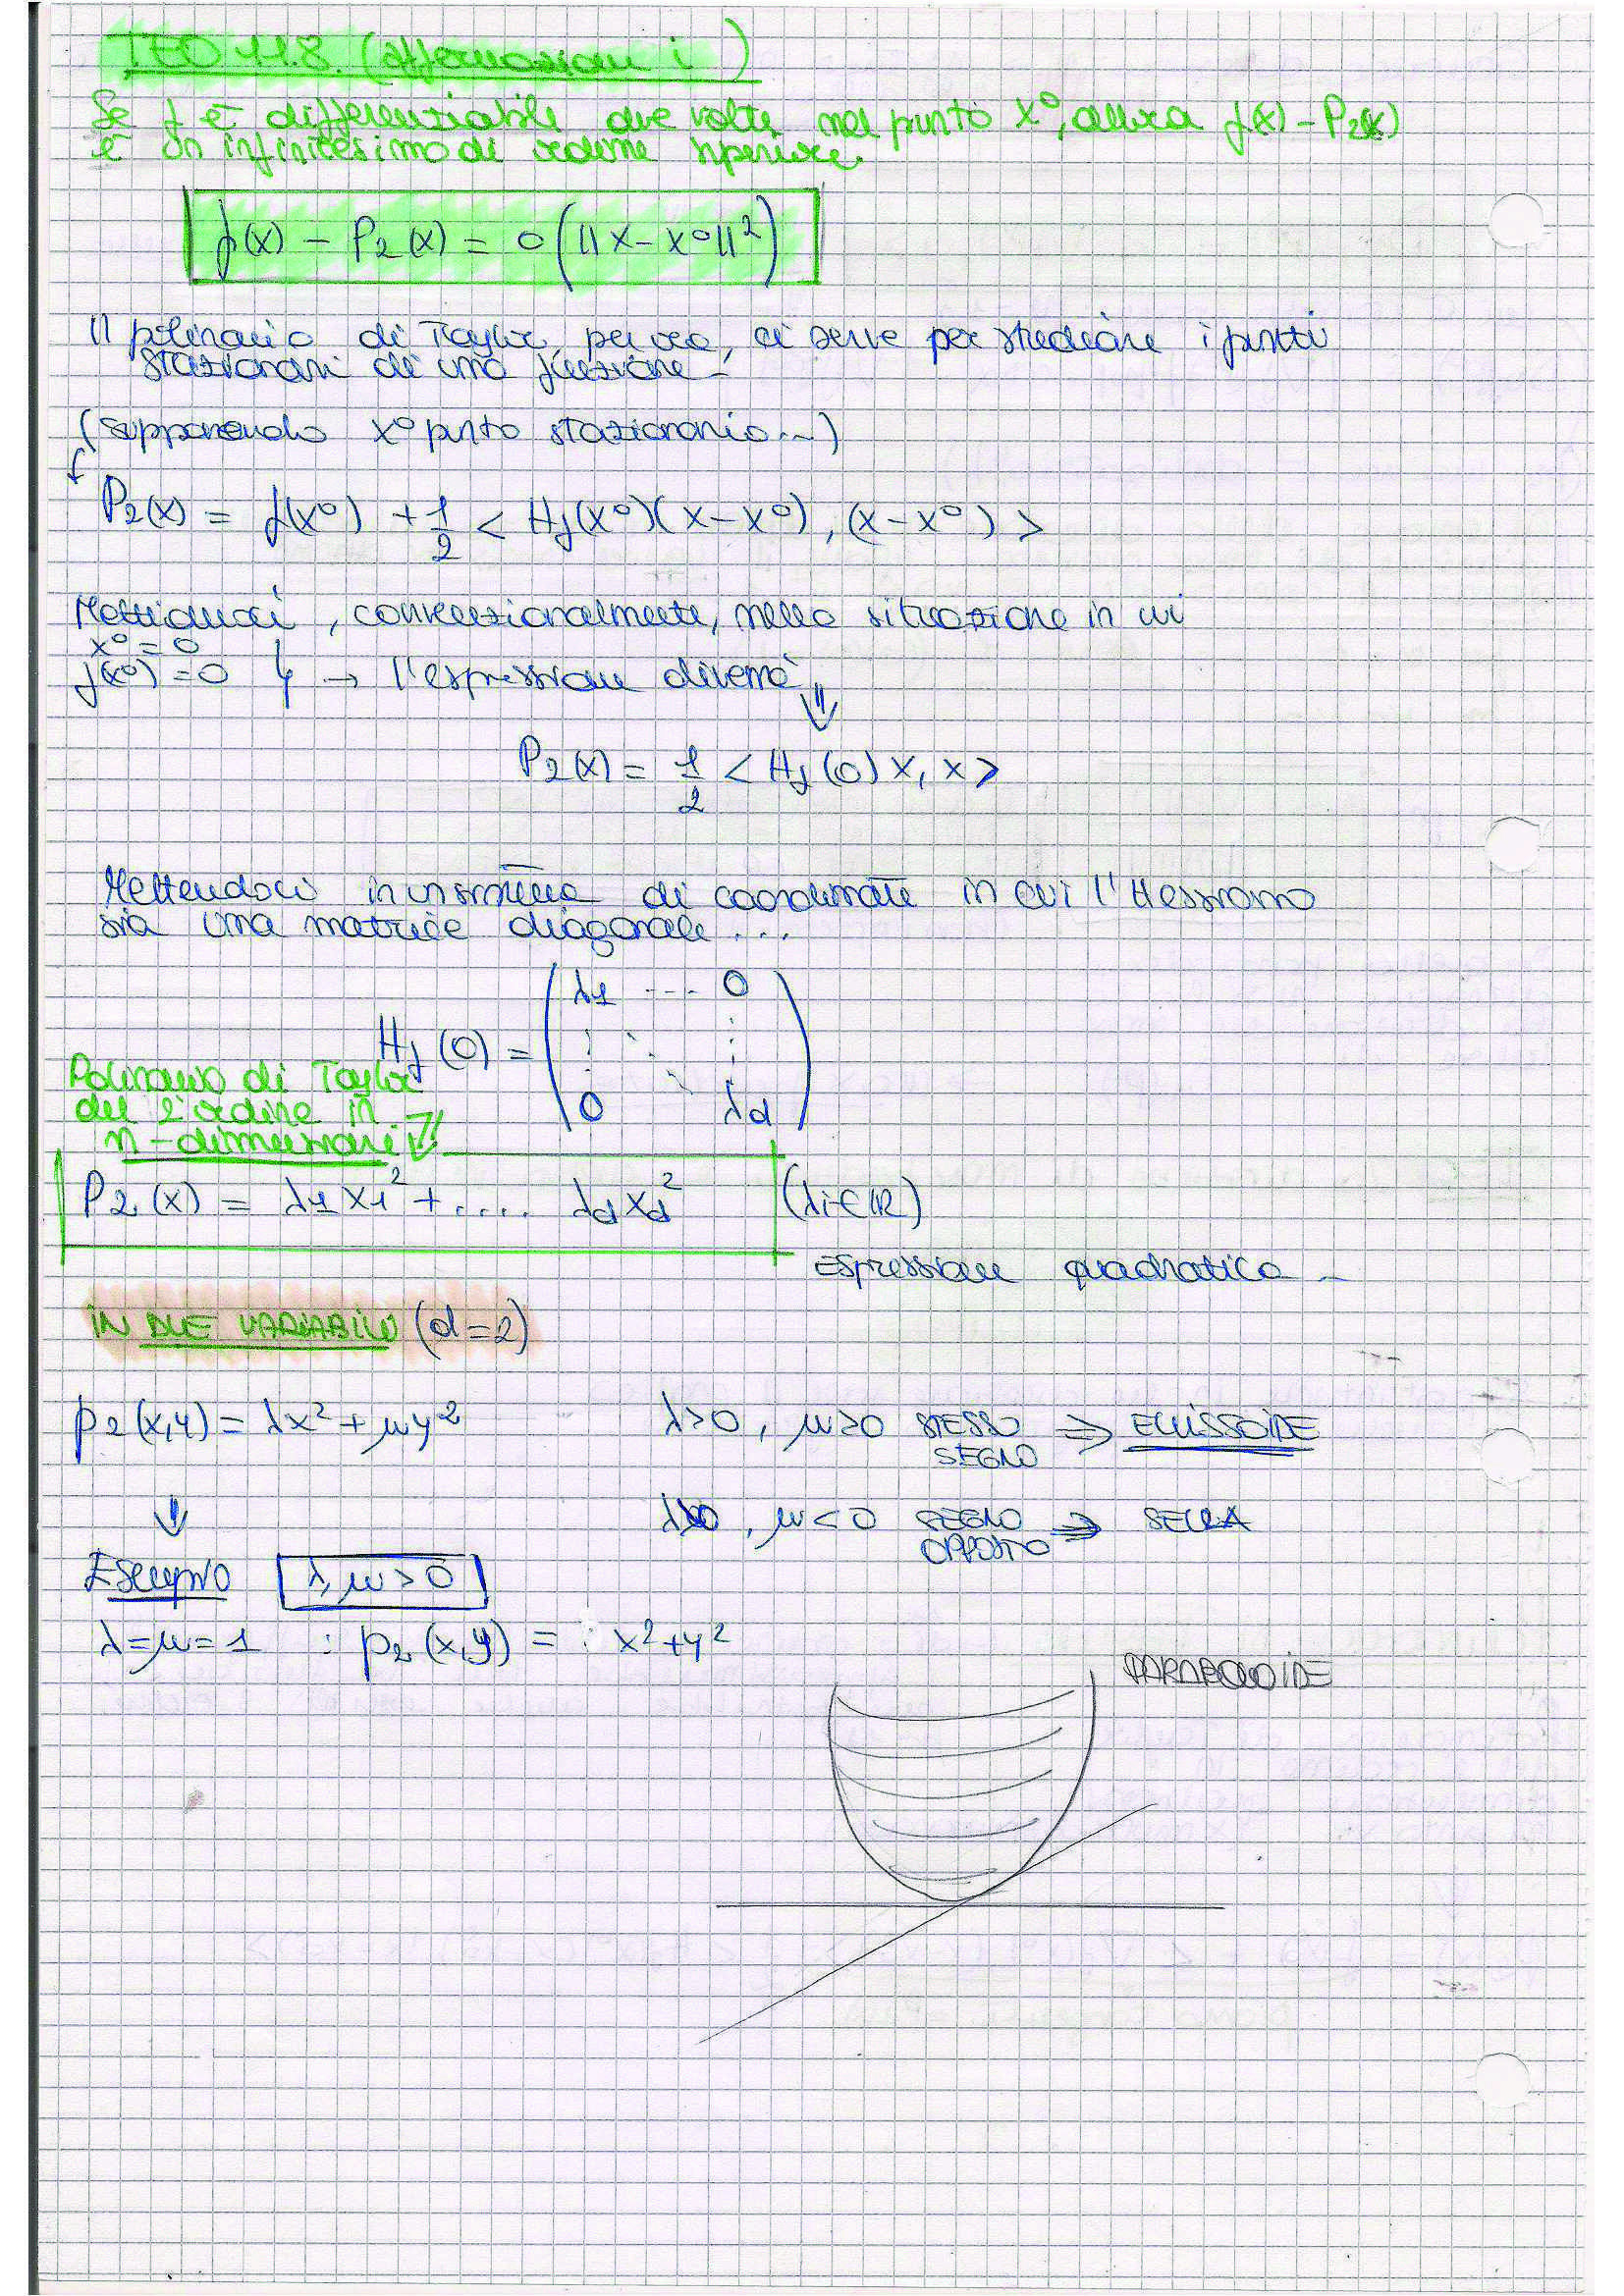 TEO 11.8. (affermazione i)
Se f è differenziabile due volte nel punto x⁰, allora f(x) - P₂(x)
è un infinitesimo di ordine superiore.
f(x) - P₂(x) = o(||x - x⁰||²)
Il polinomio di Taylor, per ora, ci serve per studiare i punti
stazionari di una funzione -
(supponendo x⁰ punto stazionario...)
P₂(x) = f(x⁰) + 1/2 < Hf(x⁰)(x-x⁰), (x-x⁰) >
Mettiamoci, convenzionalmente, nella situazione in cui
x⁰ = 0
f(x⁰) = 0 } → l'espressione diventa
⇓
P₂(x) = 1/2 < Hf(0) x, x >
Mettendoci in un sistema di coordinate in cui l'Hessiano
sia una matrice diagonale ...
λ1 ... 0
Hf(0) = ( ⋮ ⋱ ⋮ )
0 λd
Polinomio di Taylor
del 2° ordine in
n-dimensioni ⇓
P₂(x) = λ1x1² + .... λdxd² (λi∈ℝ)
Espressione quadratica -
IN DUE VARIABILI (d=2)
p₂(x,y) = λx² + μy² λ>0, μ>0 STESSO SEGNO ⇒ ELLISSOIDE
⇓ λ>0, μ<0 SEGNO OPPOSTO ⇒ SELLA
Esempio λ, μ > 0
λ=μ=1 : p₂(x,y) = : x²+y²
PARABOLOIDE